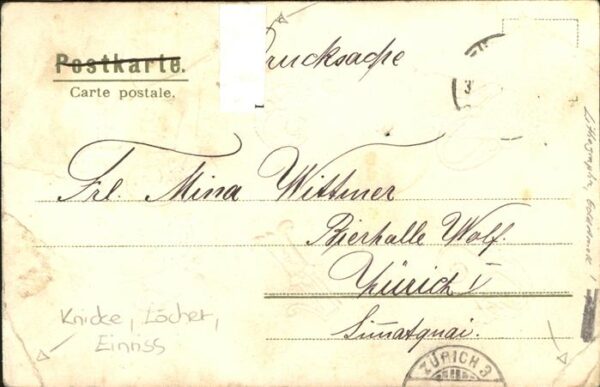 Postkarte.
Carte postale.
Drucksache
Frl. Mina Wittmer
Bierhalle Wolf.
Zürich I
Limatquai.
Knicke, Löcher,
Einriss
ZÜRICH 3